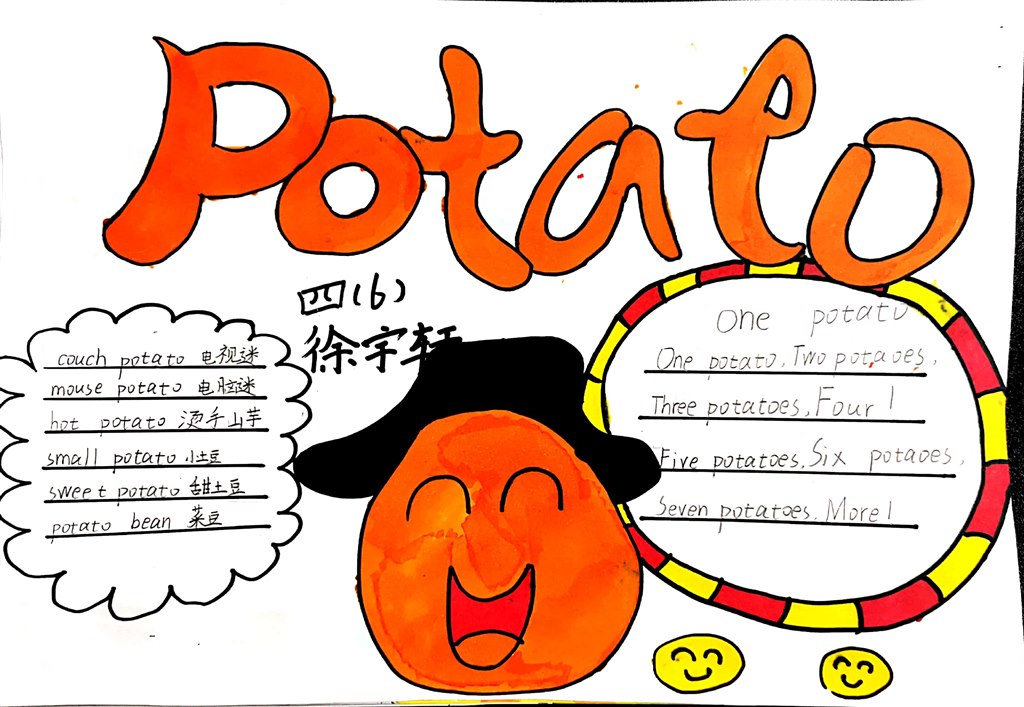 Potato
四(6)
徐宇轩
couch potato 电视迷
mouse potato 电脑迷
hot potato 烫手山芋
small potato 小土豆
sweet potato 甜土豆
potato bean 菜豆
One potato
One potato, Two potaoes,
Three potatoes, Four!
Five potatoes, Six potaoes,
Seven potatoes, More!